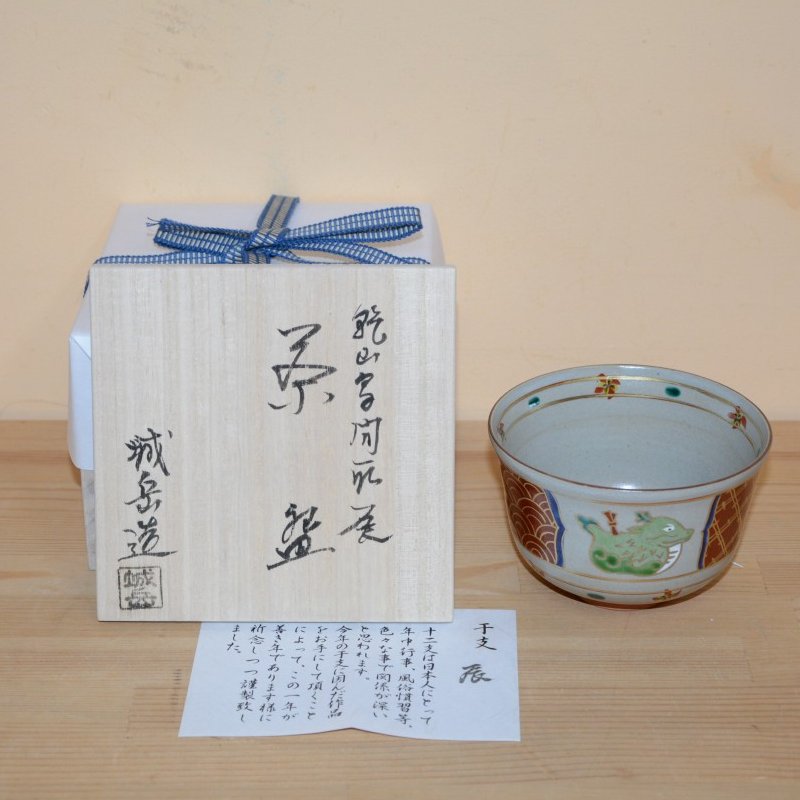 乾山写間取辰
茶盌
城岳造
城岳
干支 辰
十二支は日本人にとって
年中行事、風俗慣習等、
色々な事で関係が深い
と思われます。
今年の干支に因んだ作品
をお手にして頂くこと
によって、この一年が
善き年であります様に
祈念しつつ謹製致し
ました。